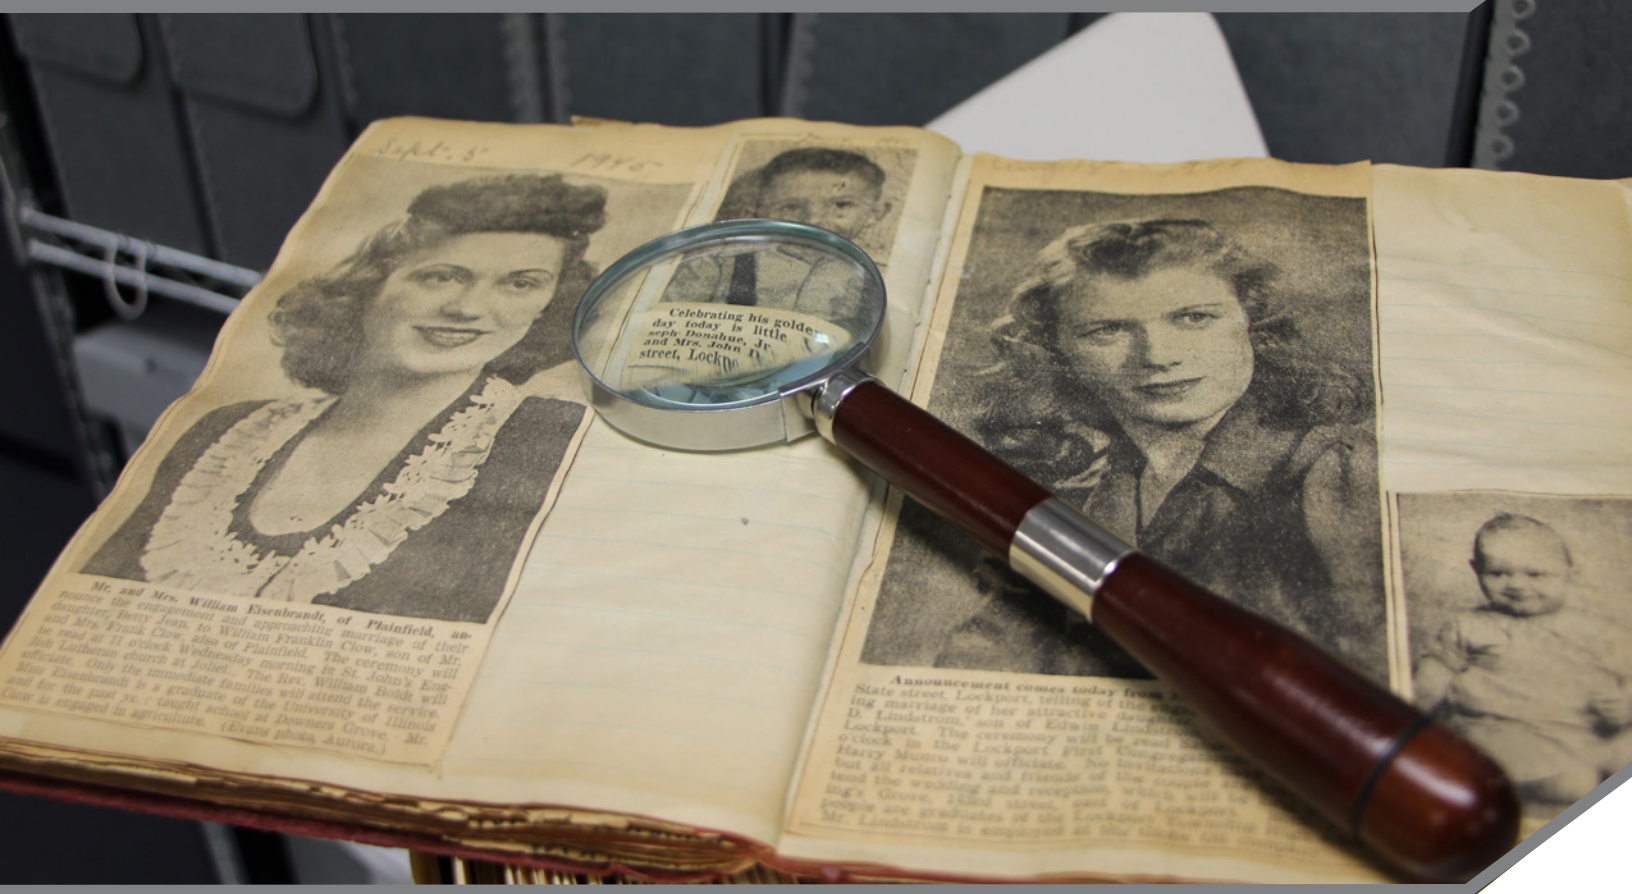 Sept. 5 1945
Mr. and Mrs. William Eisenbrandt, of Plainfield, an-
nounce the engagement and approaching marriage of their
daughter, Betty Jean, to William Franklin Clow, son of Mr.
and Mrs. Frank Clow, also of Plainfield. The ceremony will
be read at 11 o'clock Wednesday morning in St. John's Eng-
lish Lutheran church at Joliet. The Rev. William Boldt will
officiate. Only the immediate families will attend the service.
Miss Eisenbrandt is a graduate of the University of Illinois
and for the past taught school at Downers Grove. Mr.
Clow is engaged in agriculture.
(Evans photo, Aurora.)
Celebrating his golde
day today is little
seph Donahue, Jr
and Mrs. John
street, Lockpo
Announcement comes today from
State street, Lockport, telling of the
ing marriage of her attractive daugh
D. Lindstrom, son of Edwin Linds
Lockport. The ceremony will be read
o'clock in the Lockport First Congregat
Harry Munro will officiate. No invitations
but all relatives and friends of the couple
tend the wedding and reception which will be
ing's Grove, 163rd street, east of Lockport.
people are graduates of the Lockport
Mr Lindstrom is employed at the